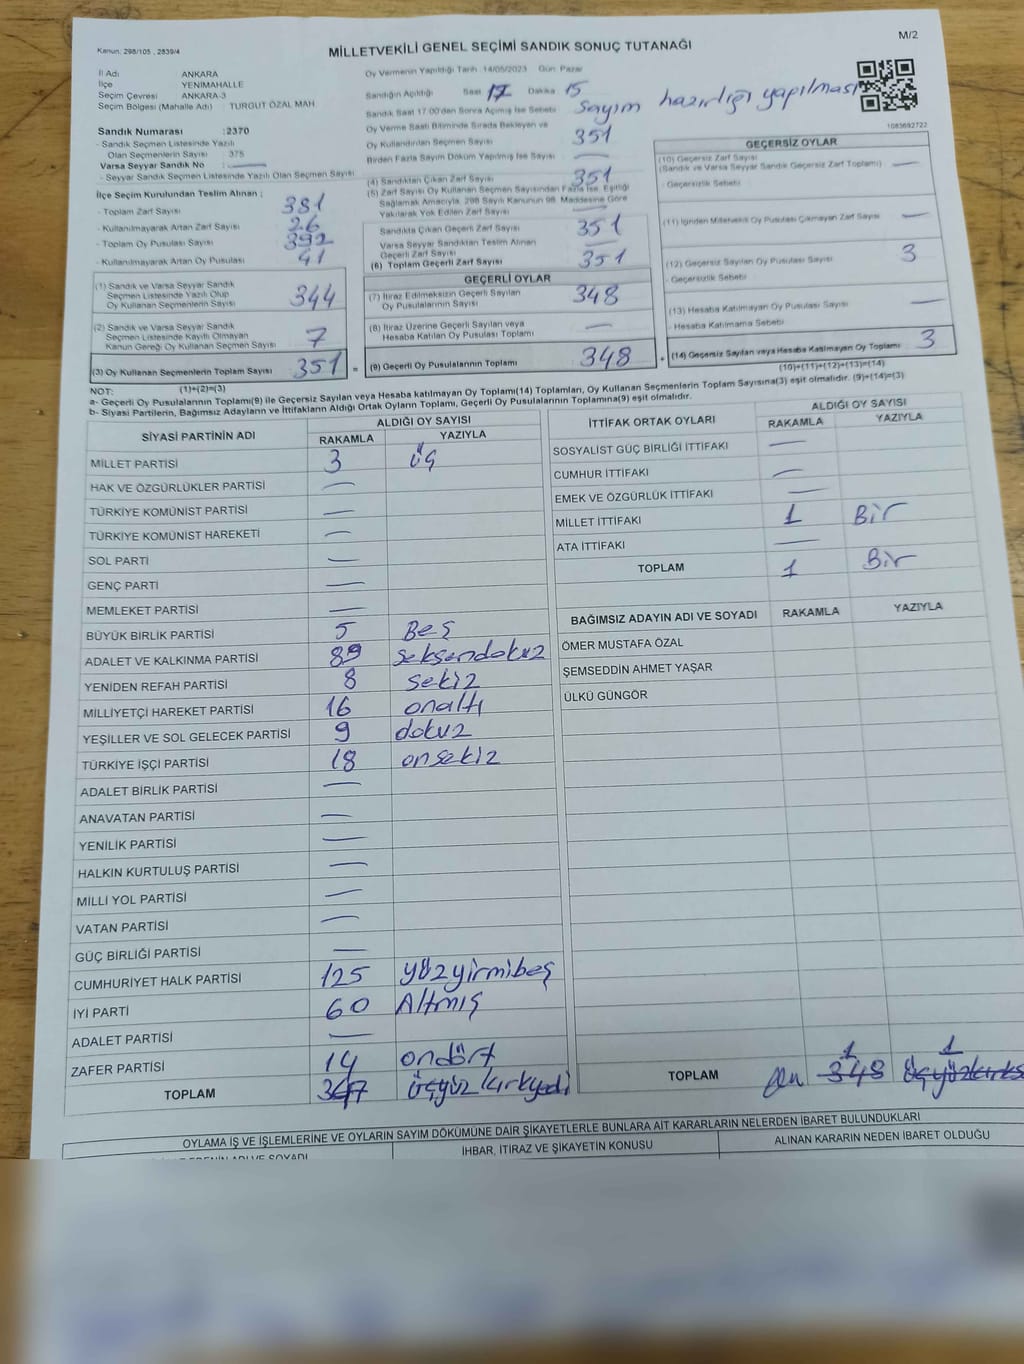 M/2
Kanun: 298/105 , 2839/4
MİLLETVEKİLİ GENEL SEÇİMİ SANDIK SONUÇ TUTANAĞI
İl Adı ANKARA
İlçe YENİMAHALLE
Seçim Çevresi ANKARA-3
Seçim Bölgesi (Mahalle Adı) TURGUT ÖZAL MAH.
Oy Vermenin Yapıldığı Tarih :14/05/2023 Gün: Pazar
Sandığın Açıldığı Saat 17 Dakika 15
Sandık Saat 17:00'den Sonra Açılmış İse Sebebi Sayım hazırlığı yapılması
Oy Verme Saati Bitiminde Sırada Bekleyen ve
Oy Kullandırılan Seçmen Sayısı 351
Birden Fazla Sayım Döküm Yapılmış İse Sayısı —
1085692722
Sandık Numarası :2370
- Sandık Seçmen Listesinde Yazılı
Olan Seçmenlerin Sayısı : 375
Varsa Seyyar Sandık No : —
- Seyyar Sandık Seçmen Listesinde Yazılı Olan Seçmen Sayısı
İlçe Seçim Kurulundan Teslim Alınan ;
- Toplam Zarf Sayısı 381
- Kullanılmayarak Artan Zarf Sayısı 26
- Toplam Oy Pusulası Sayısı 392
- Kullanılmayarak Artan Oy Pusulası 41
(1) Sandık ve Varsa Seyyar Sandık
Seçmen Listesinde Yazılı Olup
Oy Kullanan Seçmenlerin Sayısı 344
(2) Sandık ve Varsa Seyyar Sandık
Seçmen Listesinde Kayıtlı Olmayan
Kanun Gereği Oy Kullanan Seçmen Sayısı 7
(3) Oy Kullanan Seçmenlerin Toplam Sayısı 351 =
(1)+(2)=(3)
(4) Sandıktan Çıkan Zarf Sayısı 351
(5) Zarf Sayısı Oy Kullanan Seçmen Sayısından Fazla İse, Eşitliği
Sağlamak Amacıyla, 298 Sayılı Kanunun 98. Maddesine Göre
Yakılarak Yok Edilen Zarf Sayısı —
Sandıkta Çıkan Geçerli Zarf Sayısı 351
Varsa Seyyar Sandıktan Teslim Alınan
Geçerli Zarf Sayısı —
(6) Toplam Geçerli Zarf Sayısı 351
GEÇERLİ OYLAR
(7) İtiraz Edilmeksizin Geçerli Sayılan
Oy Pusulalarının Sayısı 348
(8) İtiraz Üzerine Geçerli Sayılan veya
Hesaba Katılan Oy Pusulası Toplamı —
(9) Geçerli Oy Pusulalarının Toplamı 348 +
GEÇERSİZ OYLAR
(10) Geçersiz Zarf Sayısı
(Sandık ve Varsa Seyyar Sandık Geçersiz Zarf Toplamı) —
- Geçersizlik Sebebi
(11) İçinden Milletvekili Oy Pusulası Çıkmayan Zarf Sayısı —
(12) Geçersiz Sayılan Oy Pusulası Sayısı 3
- Geçersizlik Sebebi
(13) Hesaba Katılmayan Oy Pusulası Sayısı —
- Hesaba Katılmama Sebebi
(14) Geçersiz Sayılan veya Hesaba Katılmayan Oy Toplamı 3
(10)+(11)+(12)+(13)=(14)
NOT:
a- Geçerli Oy Pusulalarının Toplamı(9) ile Geçersiz Sayılan veya Hesaba katılmayan Oy Toplamı(14) Toplamları, Oy Kullanan Seçmenlerin Toplam Sayısına(3) eşit olmalıdır. (9)+(14)=(3)
b- Siyasi Partilerin, Bağımsız Adayların ve İttifakların Aldığı Ortak Oyların Toplamı, Geçerli Oy Pusulalarının Toplamına(9) eşit olmalıdır.
SİYASİ PARTİNİN ADI ALDIĞI OY SAYISI
RAKAMLA YAZIYLA
MİLLET PARTİSİ 3 üç
HAK VE ÖZGÜRLÜKLER PARTİSİ —
TÜRKİYE KOMÜNİST PARTİSİ —
TÜRKİYE KOMÜNİST HAREKETİ —
SOL PARTİ —
GENÇ PARTİ —
MEMLEKET PARTİSİ —
BÜYÜK BİRLİK PARTİSİ 5 Beş
ADALET VE KALKINMA PARTİSİ 89 seksendokuz
YENİDEN REFAH PARTİSİ 8 sekiz
MİLLİYETÇİ HAREKET PARTİSİ 16 onaltı
YEŞİLLER VE SOL GELECEK PARTİSİ 9 dokuz
TÜRKİYE İŞÇİ PARTİSİ 18 onsekiz
ADALET BİRLİK PARTİSİ —
ANAVATAN PARTİSİ —
YENİLİK PARTİSİ —
HALKIN KURTULUŞ PARTİSİ —
MİLLİ YOL PARTİSİ —
VATAN PARTİSİ —
GÜÇ BİRLİĞİ PARTİSİ —
CUMHURİYET HALK PARTİSİ 125 yüzyirmibeş
İYİ PARTİ 60 Altmış
ADALET PARTİSİ —
ZAFER PARTİSİ 14 ondört
TOPLAM 347 üçyüzkırkyedi
İTTİFAK ORTAK OYLARI ALDIĞI OY SAYISI
RAKAMLA YAZIYLA
SOSYALİST GÜÇ BİRLİĞİ İTTİFAKI —
CUMHUR İTTİFAKI —
EMEK VE ÖZGÜRLÜK İTTİFAKI —
MİLLET İTTİFAKI 1 Bir
ATA İTTİFAKI —
TOPLAM 1 Bir
BAĞIMSIZ ADAYIN ADI VE SOYADI RAKAMLA YAZIYLA
ÖMER MUSTAFA ÖZAL
ŞEMSEDDİN AHMET YAŞAR
ÜLKÜ GÜNGÖR
1 1
TOPLAM 348
OYLAMA İŞ VE İŞLEMLERİNE VE OYLARIN SAYIM DÖKÜMÜNE DAİR ŞİKAYETLERLE BUNLARA AİT KARARLARIN NELERDEN İBARET BULUNDUKLARI
İHBAR, İTİRAZ VE ŞİKAYETİN KONUSU ALINAN KARARIN NEDEN İBARET OLDUĞU